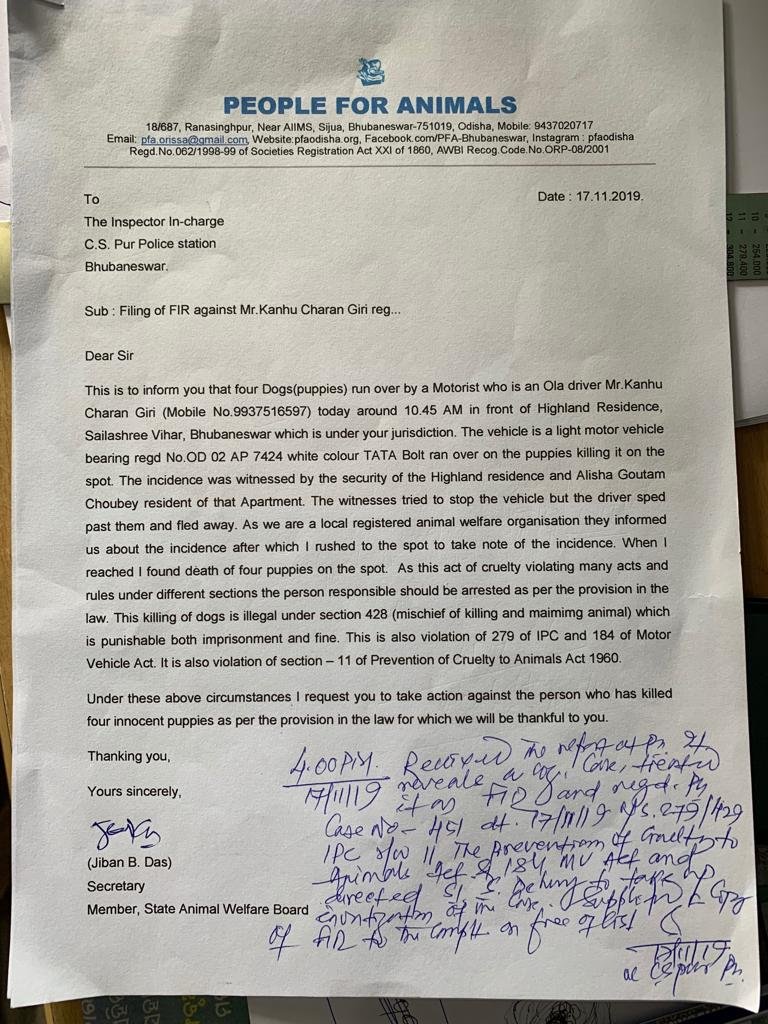 PEOPLE FOR ANIMALS
18/687, Ranasinghpur, Near AIIMS, Sijua, Bhubaneswar-751019, Odisha, Mobile: 9437020717
Email: pfa.orissa@gmail.com, Website:pfaodisha.org, Facebook.com/PFA-Bhubaneswar, Instagram : pfaodisha
Regd.No.062/1998-99 of Societies Registration Act XXI of 1860, AWBI Recog.Code.No.ORP-08/2001
To
Date : 17.11.2019.
The Inspector In-charge
C.S. Pur Police station
Bhubaneswar.
Sub : Filing of FIR against Mr.Kanhu Charan Giri reg...
Dear Sir
This is to inform you that four Dogs(puppies) run over by a Motorist who is an Ola driver Mr.Kanhu
Charan Giri (Mobile No.9937516597) today around 10.45 AM in front of Highland Residence,
Sailashree Vihar, Bhubaneswar which is under your jurisdiction. The vehicle is a light motor vehicle
bearing regd No.OD 02 AP 7424 white colour TATA Bolt ran over on the puppies killing it on the
spot. The incidence was witnessed by the security of the Highland residence and Alisha Goutam
Choubey resident of that Apartment. The witnesses tried to stop the vehicle but the driver sped
past them and fled away. As we are a local registered animal welfare organisation they informed
us about the incidence after which I rushed to the spot to take note of the incidence. When I
reached I found death of four puppies on the spot. As this act of cruelty violating many acts and
rules under different sections the person responsible should be arrested as per the provision in the
law. This killing of dogs is illegal under section 428 (mischief of killing and maimimg animal) which
is punishable both imprisonment and fine. This is also violation of 279 of IPC and 184 of Motor
Vehicle Act. It is also violation of section – 11 of Prevention of Cruelty to Animals Act 1960.
Under these above circumstances I request you to take action against the person who has killed
four innocent puppies as per the provision in the law for which we will be thankful to you.
Thanking you,
Yours sincerely,
(Jiban B. Das)
Secretary
Member, State Animal Welfare Board
4.00 P.M. Received the report at Ps. It
17/11/19 reveals a cog. Case, treated
it as FIR and regd. Ps
Case No- 451 dt. 17/11/19 u/s. 279/429
IPC r/w 11 The prevention of Cruelty to
Animals Act & 184 MV Act and
directed S.I. to take up
investigation of the Case. Supplied copy
of FIR to the complt. on free of cost
17/11/19
CSpur Ps.
10 - 254,000
11 - 279,400
12 - 304,800